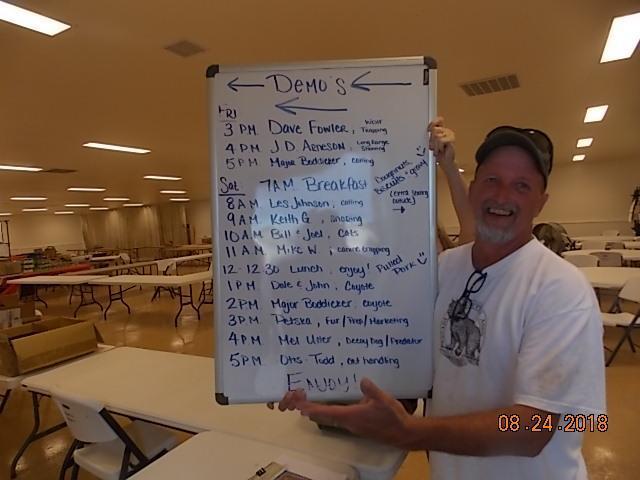 DEMO'S
FRI
3 PM Dave Fowler, Wolf Trapping
4 PM J.D. Acneson, Long Range Shooting
5 PM Major Boddicker, calling
Sat. 7 AM Breakfast Doughnuts, Biscuits & gravy
(extra seating outside)
8 AM Les Johnson, calling
9 AM Keith G, snaring
10 AM Bill & Joel, Cats
11 AM Mike W, canine trapping
12-12:30 Lunch, enjoy! Pulled Pork
1 PM Dale & John, Coyote
2 PM Major Boddicker, coyote
3 PM Petska, Fur/Prep/Marketing
4 PM Mel Utter, Decoy Dog/Predator
5 PM Otis Todd, cat handling
ENJOY!
08.24.2018